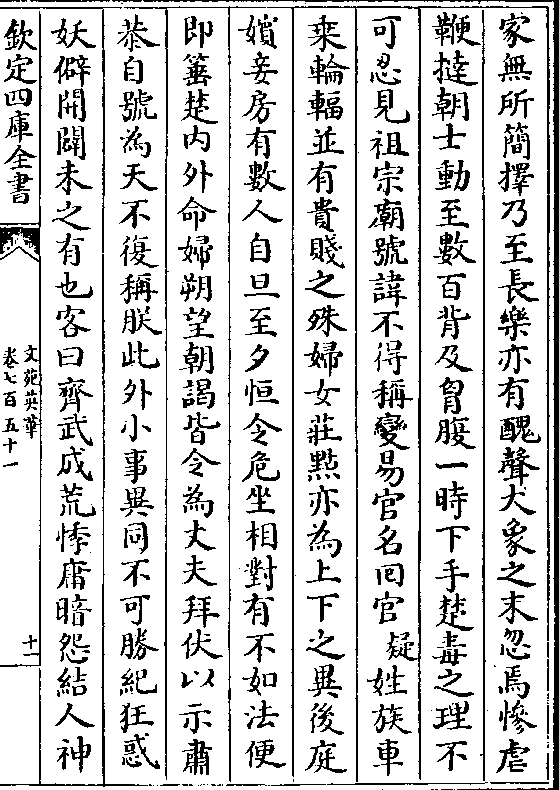 家無所簡擇乃至長樂亦有醜聲犬象之末忽焉慘虐
鞭撻朝士動至數百背及胷腹一時下手楚毒之理不
可忍見祖宗廟號諱不得稱變易官名囘官疑姓族車
乗輪輻並有貴賤之殊婦女莊㸃亦為上下之異後庭
嬪妾房有數人自旦至夕恒令危坐相對有不如法便
即箠楚内外命婦朔望朝謁皆令為丈夫拜伏以示肅
恭自號為天不復稱朕此外小事異同不可勝紀狂惑
妖僻開闢未之有也客曰齊武成荒悖庸暗怨結人神
欽定四庫全書
文苑英華
卷七百五十一
十一